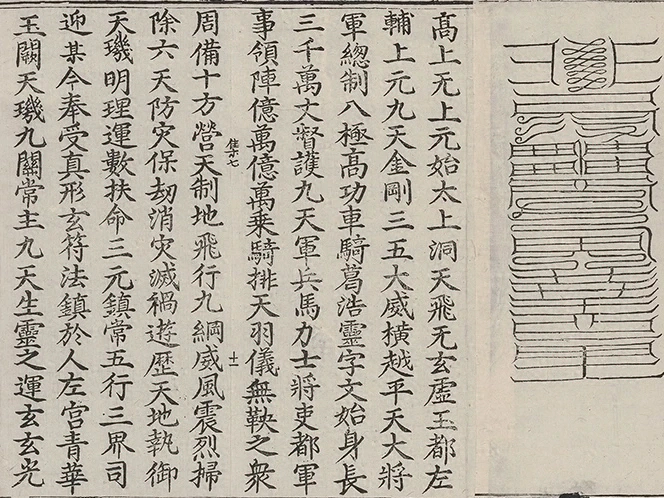 高上无上元始太上洞天飛无玄虛玉都左
輔上元九天金剛三五大威橫越平天大將
軍總制八極高功車騎葛浩靈字文始身長
三千萬丈督護九天軍兵馬力士將吏都軍
事領陣億萬億萬乘騎排天羽儀無鞅之衆
集七
十一
周備十方營天制地飛行九綱威風震烈掃
除六天防灾保劫消灾滅禍遊歷天地執御
天璣明理運數扶命三元鎮常五行三界司
迎某今奉受真形玄符法鎮於人左宮青華
玉闕天璣九關常主九天生靈之運玄玄光